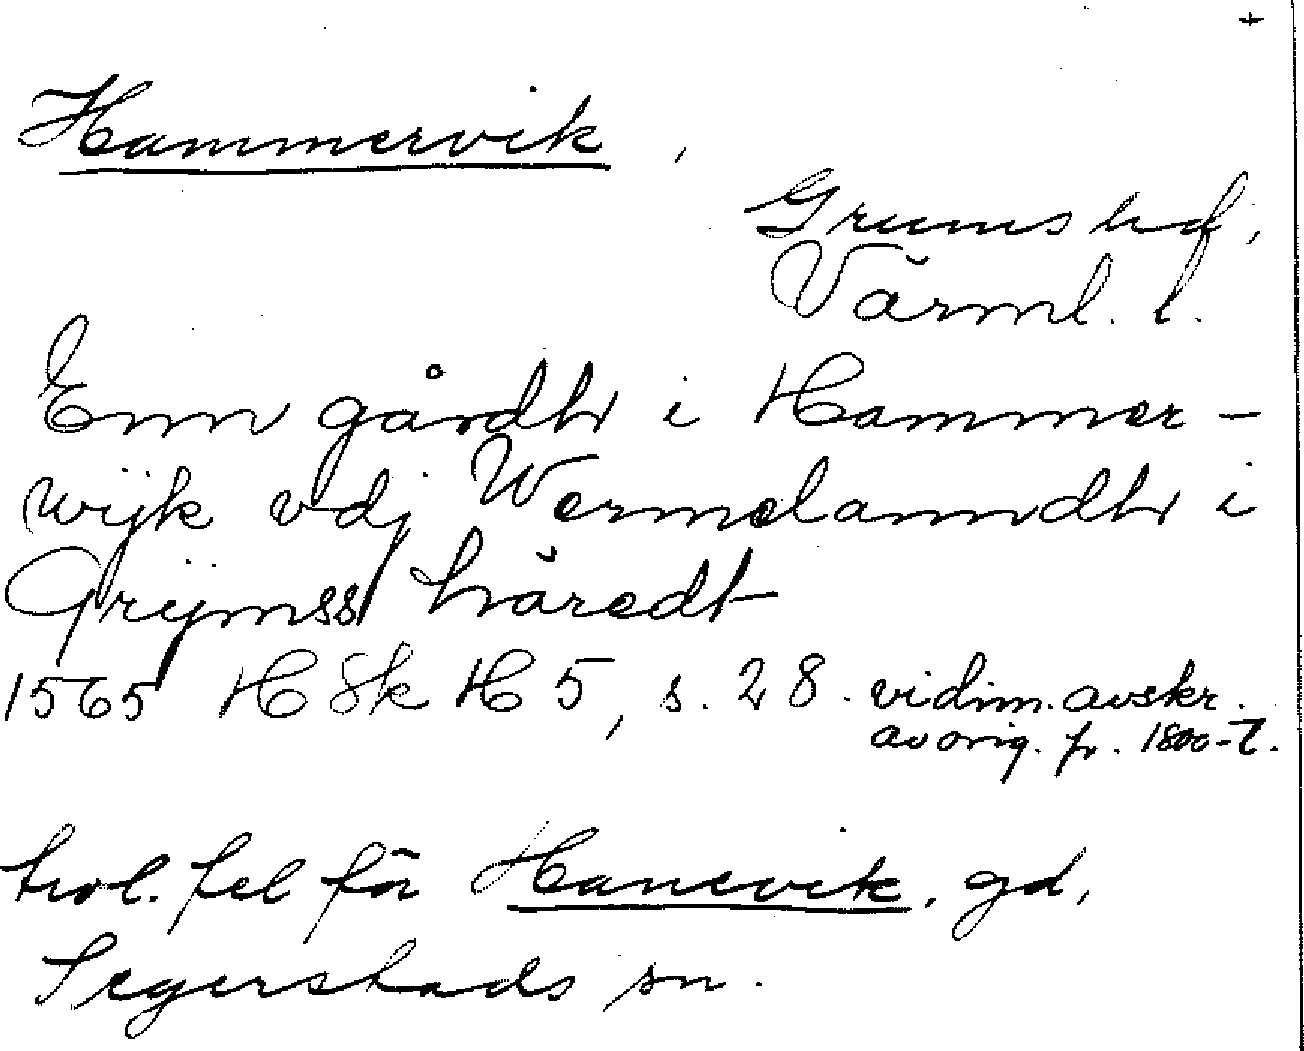 +
Hammervik,
Grums hd,
Värml. l.
Enn gårdh i Hammer-
wijk vdj Wermelanndh i
Grÿmss häredt
1565 H Sk H 5, s. 28. vidim. avskr.
av orig. fr. 1800-t.
trol. fel för Hanevik, gd,
Segerstads sn.